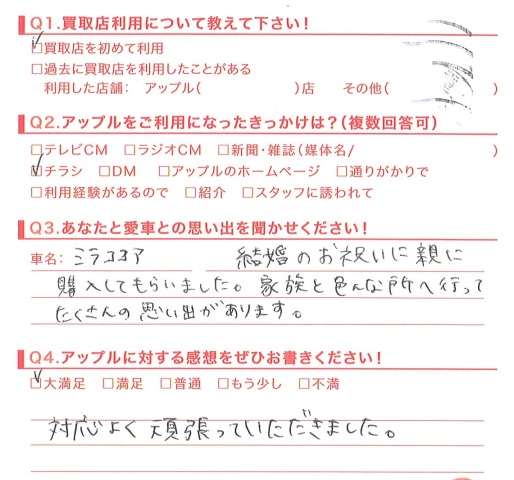 Q1.買取店利用について教えて下さい！
☑買取店を初めて利用
□過去に買取店を利用したことがある
利用した店舗： アップル（　　　　　）店　その他（　　　　　）
Q2.アップルをご利用になったきっかけは？（複数回答可）
□テレビCM □ラジオCM □新聞・雑誌（媒体名/　　　　　）
☑チラシ □DM □アップルのホームページ □通りがかりで
□利用経験があるので □紹介 □スタッフに誘われて
Q3.あなたと愛車との思い出を聞かせください！
車名： ミラココア　結婚のお祝いに親に
購入してもらいました。家族と色んな所へ行って
たくさんの思い出があります。
Q4.アップルに対する感想をぜひお書きください！
☑大満足 □満足 □普通 □もう少し □不満
対応よく頑張っていただきました。